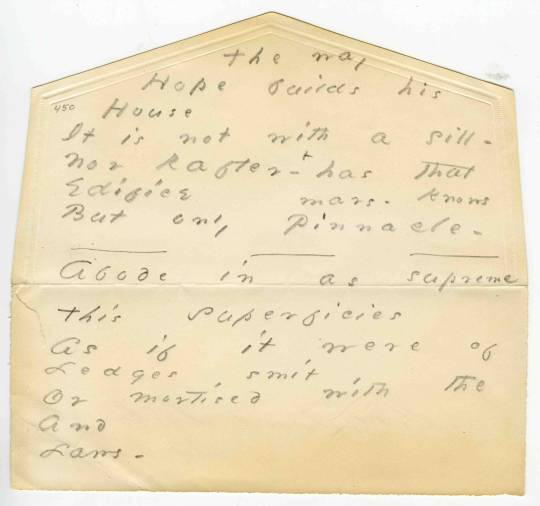 the way
450
Hope builds his
House
It is not with a sill -
Nor Rafter - + has that
Edifice mars - knows
But only Pinnacle -
Abode in as supreme
This superficies
As if it were of
Ledges smit
Or mortised with the
And
Laws -